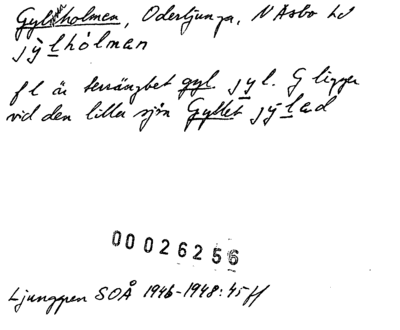 Gylsholmen, Oderljunga, N Åsbo hd
jỳlhólman
f l är terrängbet gyl. jyl. G ligger
vid den lilla sjön Gyllet jỳlad
00026256
Ljunggren SOÅ 1946-1948:45ff